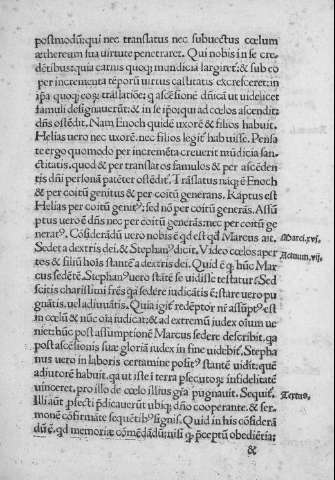 postmodū: qui nec translatus nec subuectus cœlum
æthereum sua uirtute penetraret. Qui nobis in se cre-
dētibus: quia carnis quoq; mundicia largiret̃: & sub eo
per incrementa tēporū uirtus castitatis excresceret: in
ip̃a quoq; eoꝝ trāslatiōe: q̃ ascēsionē dñicā ut uidelicet
famuli designauerūt: & in se ip̃o: qui ad cœlos ascendit:
dñs ostēdit. Nam Enoch quidē uxorē & filios habuit.
Helias uero nec uxorē. nec filios legit̃ habuisse. Pensa-
te ergo quomodo per incremēta creuerit mūdicia san-
ctitatis. quod & per translatos famulos & per ascēden-
tis dñi personā patēter ostēdit̃. Trāslatus náq; ē Enoch
& per coitū genitus & per coitū generans. Raptus est
Helias per coitū genit⁹: sed nō per coitū generās. Assū-
ptus uero ē dñs nec per coitū generās: nec per coitū ge-
nerat⁹. Cōsiderādū uero nobis ē qd est qd Marcus ait.
Marci. xvi.
Sedet a dextris dei. & Stephan⁹ dicit. Video cœlos aper-
Actuum. vij.
tos & filiū hois stantē a dextris dei. Quid ē q̃ hūc Mar-
cus sedētē. Stephan⁹ uero stātē se uidisse testatur: Sed
scitis charissimi fr̃es q̃a sedere iudicātis ē: stare uero pu-
gnātis. uel adiuuātis. Quia igit̃ redēptor nr̃ assūpt⁹ est
in cœlū & nūc oĩa iudicat: & ad extremū iudex oĩum ue-
niet: hūc post assumptionē Marcus sedere describit. q̃a
post ascēsionis suæ gloriā iudex in fine uidebit̃. Stepha-
nus uero in laboris certamine posit⁹ stantē uidit: quē
adiutorē habuit. q̃a ut iste i terra ꝑsecutoꝝ infidelitatē
uinceret. pro illo de cœlo illius gr̃a pugnauit. Sequit̃.
Textus.
Illi aūt ꝓfecti p̃dicauerūt ubiq; dño cooperante. & ser-
monē cōfirmāte sequētib⁹ signis. Quid in his cōsiderā-
dū ē. qd memoriæ cōmēdādū: nisi q̃ p̃ceptū obediētia:
&